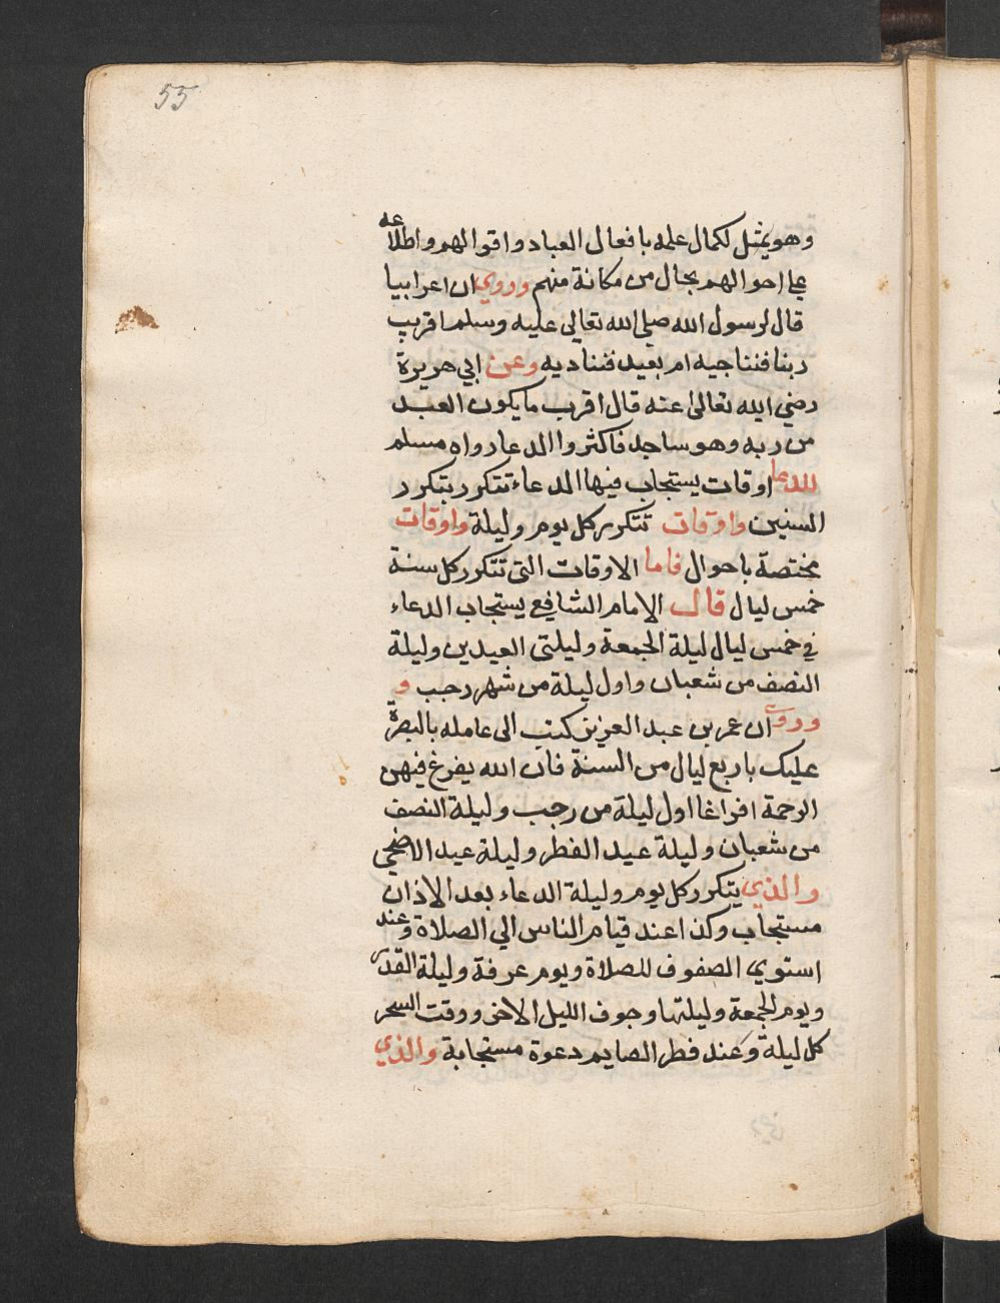 55
وهو يمثل لكمال علمه بافعال العباد واقوالهم واطلاعه
على احوالهم بحال من مكانة منهم وروي ان اعرابيا
قال لرسول الله صلى الله تعالى عليه وسلم اقريب
ربنا فنناجيه ام بعيد فنناديه وعن ابي هريرة
رضي الله تعالى عنه قال اقرب ما يكون العبد
من ربه وهو ساجد فاكثروا الدعا رواه مسلم
للدعا اوقات يستجاب فيها الدعاء تتكرر بتكرر
السنين واوقات تتكرر كل يوم وليلة واوقات
مختصة باحوال فاما الاوقات التي تتكرر كل سنة
خمس ليال قال الامام الشافعي يستجاب الدعاء
في خمس ليال ليلة الجمعة وليلتي العيدين وليلة
النصف من شعبان واول ليلة من شهر رجب و
وروي ان عمر بن عبد العزيز كتب الى عامله بالبصرة
عليك باربع ليال من السنة فان الله يفرغ فيهن
الرحمة افراغا اول ليلة من رجب وليلة النصف
من شعبان وليلة عيد الفطر وليلة عيد الاضحى
والذي يتكرر كل يوم وليلة الدعاء بعد الاذان
مستجاب وكذا عند قيام الناس الي الصلاة وعند
استوي الصفوف للصلاة ويوم عرفة وليلة القدر
ويوم الجمعة وليلتها وجوف الليل الاخر ووقت السحر
كل ليلة وعند فطر الصايم دعوة مستجابة والذي